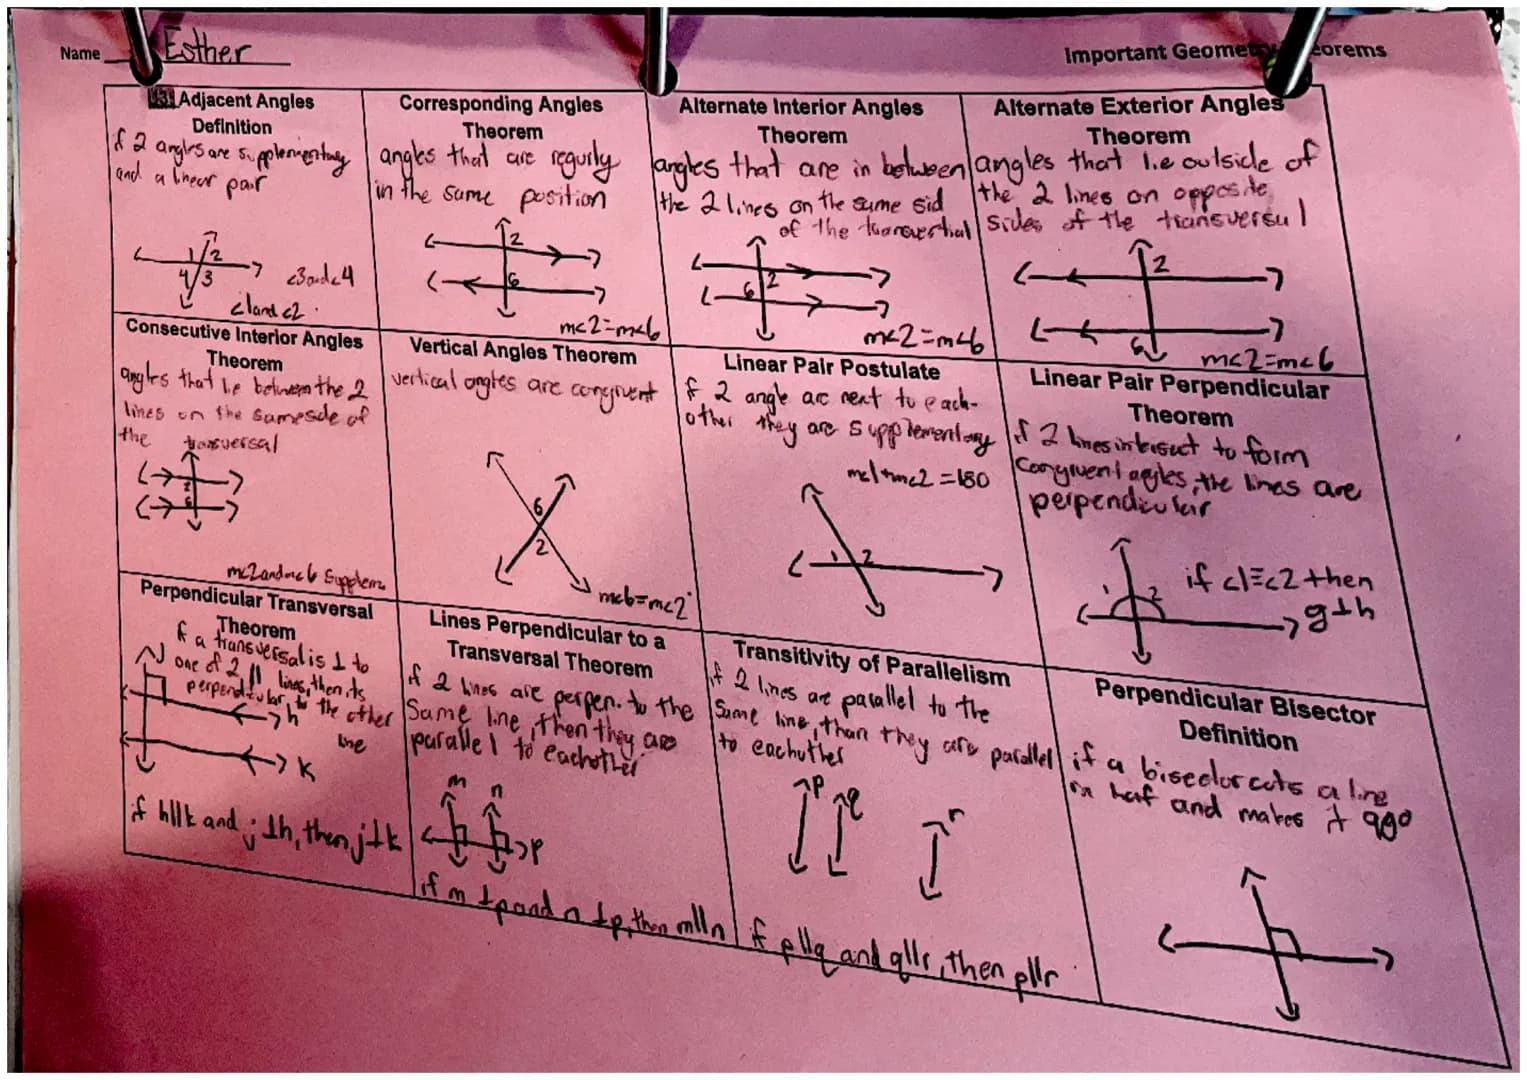 Name Esther
Important Geometry Theorems
Adjacent Angles
Definition
if 2 angles are supplementary
and a linear pair
1 2
4 3
<3 and <4
<1 and <2
Corresponding Angles
Theorem
angles that are
in the same position
2
6
m<2=m<6
Alternate Interior Angles
Theorem
angles that are in between
the 2 lines on the same sid
of the
2
6
m<2=m<6
Alternate Exterior Angles
Theorem
angles that lie outside of
the 2 lines on opposite
sides of the transversal
2
6
m<2=m<6
Consecutive Interior Angles
Theorem
angles that lie between the 2
lines on the same side of
the transversal
2
6
m<2 and m<6 Supplem.
Vertical Angles Theorem
vertical angles are congruent
6
2
m<6=m<2
Linear Pair Postulate
if 2 angle are next to each-
other they are supplementary
m<1+m<2=180
1 2
Linear Pair Perpendicular
Theorem
if 2 lines intersect to form
congruent angles, the lines are
perpendicular
1 2
if <1≅<2 then
g⊥h
Perpendicular Transversal
Theorem
if a transversal is ⊥ to
one of 2 || lines, then its
perpendicular to the other
line
J
h
K
if h||k and j⊥h, then j⊥k
Lines Perpendicular to a
Transversal Theorem
if 2 lines are perpen. to the
same line, then they are
parallel to eachother
m n
p
if m⊥p and n⊥p, then m||n
Transitivity of Parallelism
if 2 lines are parallel to the
same line, than they are parallel
to eachother
p q r
if p||q and q||r, then p||r
Perpendicular Bisector
Definition
if a bisector cuts a line
in haf and makes it 90°